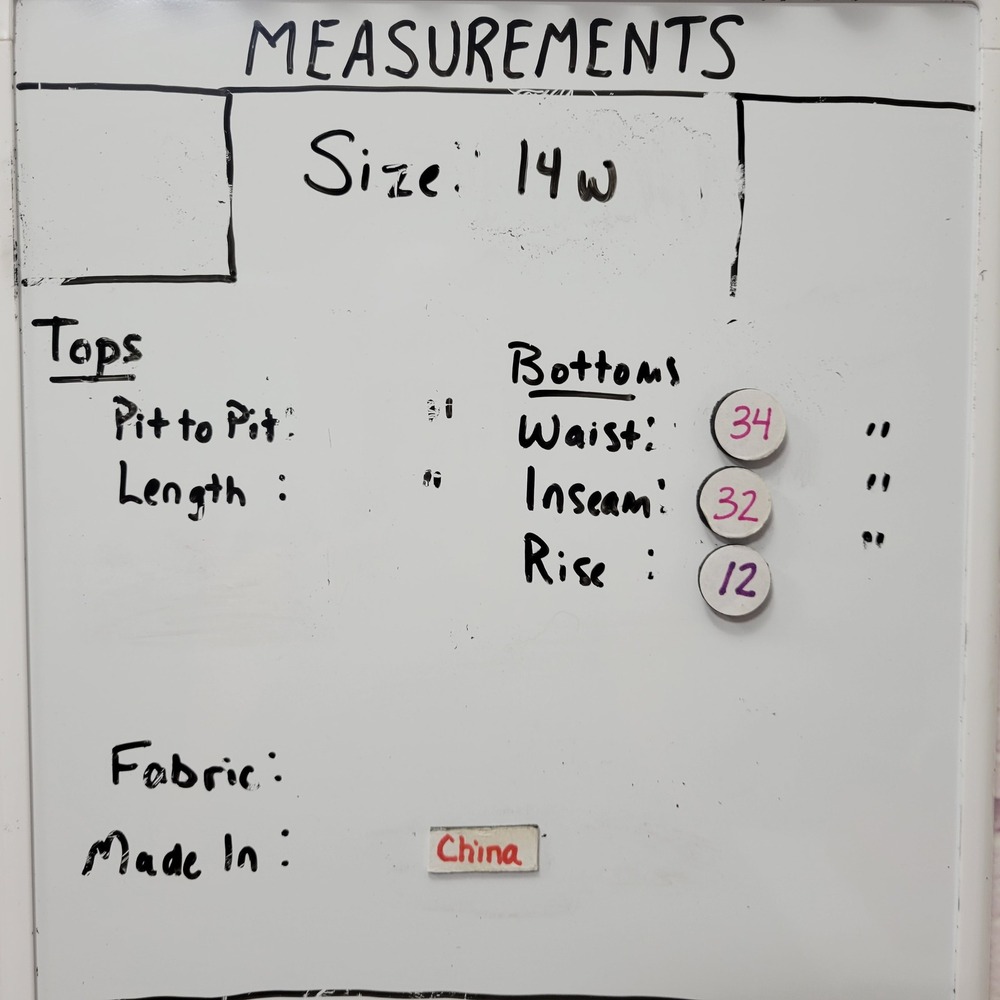 MEASUREMENTS
Size: 14w
Tops
Pit to Pit: "
Length : "
Bottoms
Waist: 34 "
Inseam: 32 "
Rise : 12 "
Fabric:
Made In: China